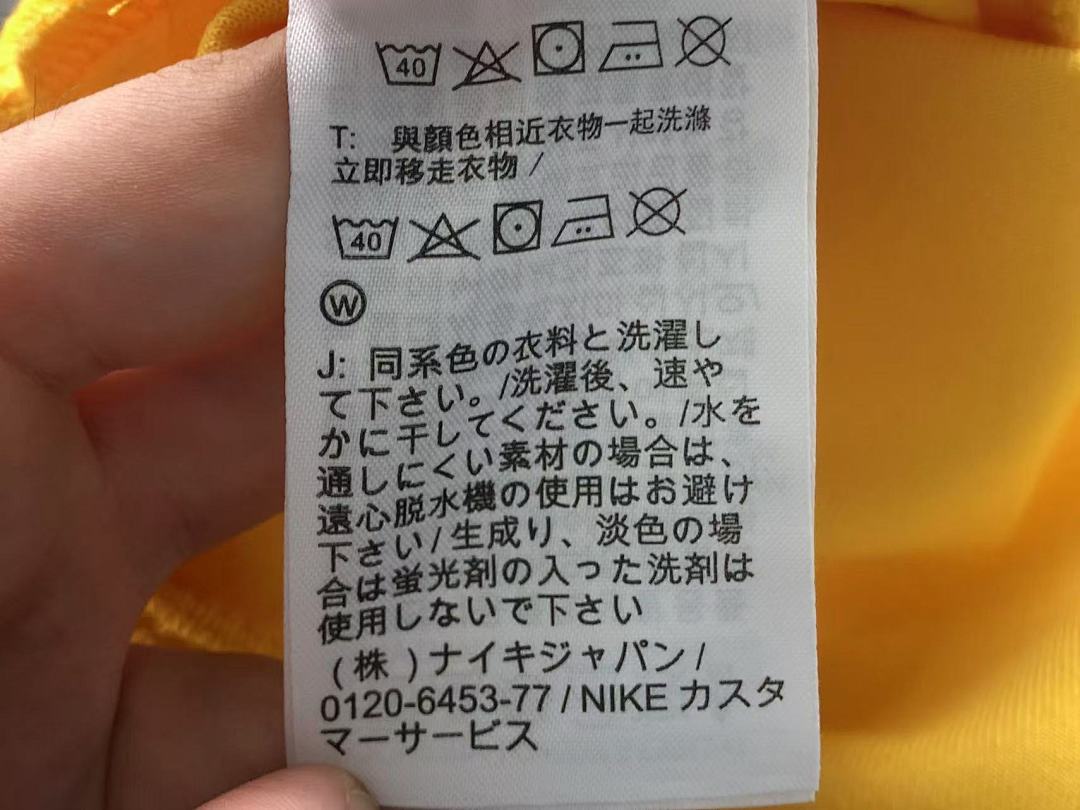 40
T: 與顏色相近衣物一起洗滌
立即移走衣物 /
40
W
J: 同系色の衣料と洗濯し
て下さい。/洗濯後、速や
かに干してください。/水を
通しにくい素材の場合は、
遠心脱水機の使用はお避け
下さい/生成り、淡色の場
合は蛍光剤の入った洗剤は
使用しないで下さい
(株)ナイキジャパン/
0120-6453-77 / NIKE カスタ
マーサービス